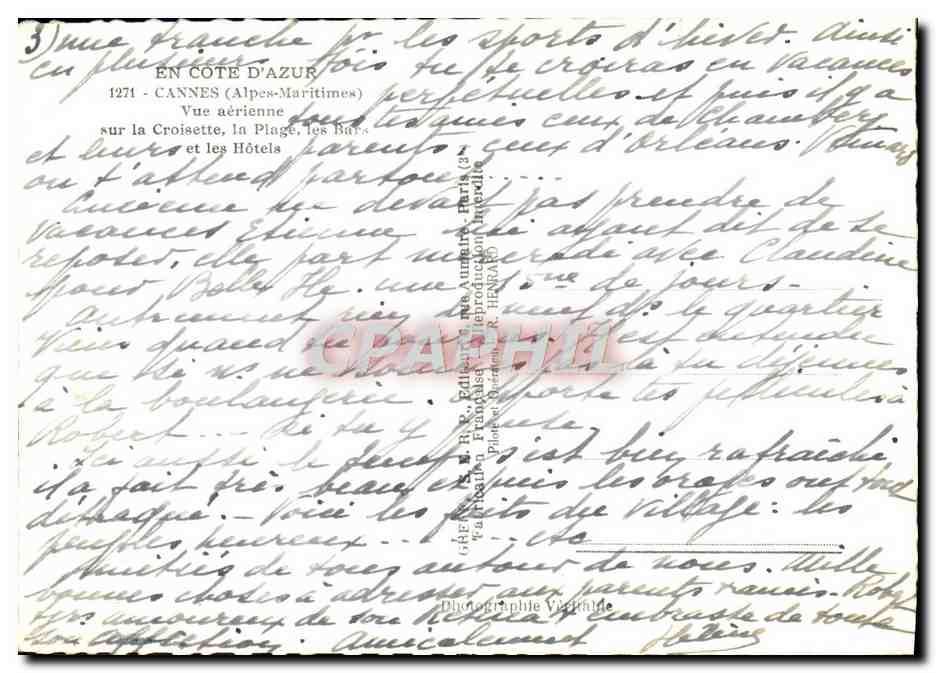 3) une tranche pr les sports d'hiver. Ainsi
en plusieurs fois tu te croiras en vacances
EN COTE D'AZUR
1271 - CANNES (Alpes-Maritimes)
Vue aérienne
sur la Croisette, la Plage, les Bars
et les Hôtels
perpétuelles et puis il y a
ceux de Chambéry
et leurs parents ceux d'Orléans.
on t'attend partout.....
devait pas prendre de
vacances ayant dit de se
reposer, elle part mercredi avec Claudine
pour Belle Ile une 15ne de jours -
Autrement rien de neuf ds le quartier
Viens quand tu
que si ns ne
à la boulangerie. Apporte tes pellicules à
Robert... Si tu y penses
Ici aussi le temps s'est bien rafraîchi
il a fait très beau et puis les orages ont tout
détraqué. - Voici les faits du village : les
peuples heureux... etc
Amitiés de tous autour de nous. Mille
bonnes choses à adresser aux parents & amis. Robert
très amoureux de son Rétina t'embrasse de toute
son affection. Amicalement Hélène
GREFF S. E. R. P., Editeur, rue Aumaire - Paris (3e
Fabrication Française - Reproduction Interdite
Pilote et Opérateur R. HENRARD
Photographie Véritable
CPAPHIL